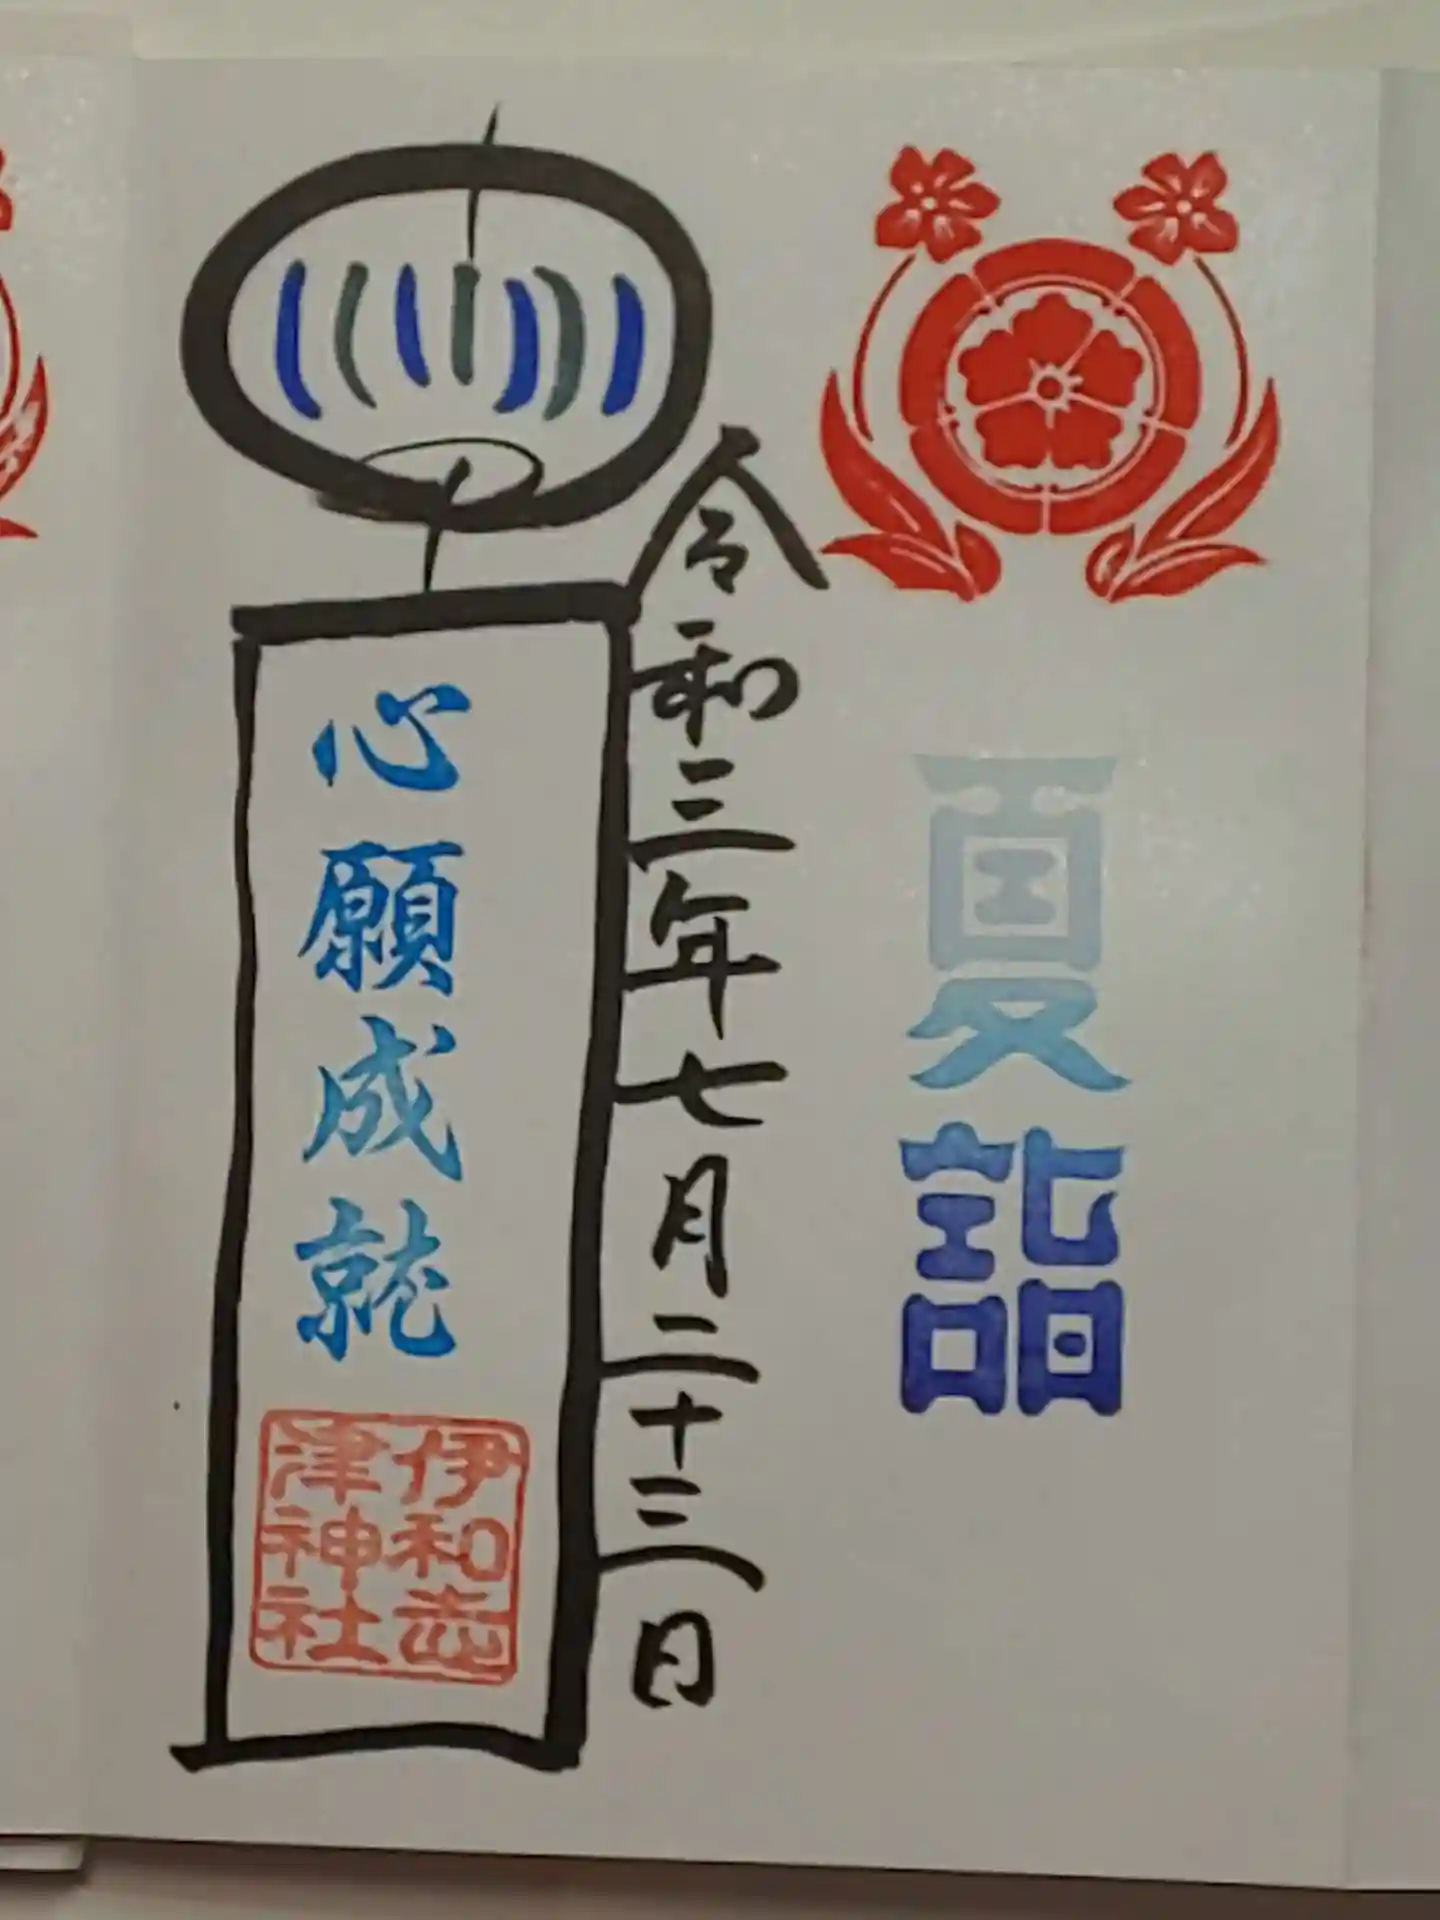 夏詣
令和三年七月二十三日
心願成就
伊和志
津神社